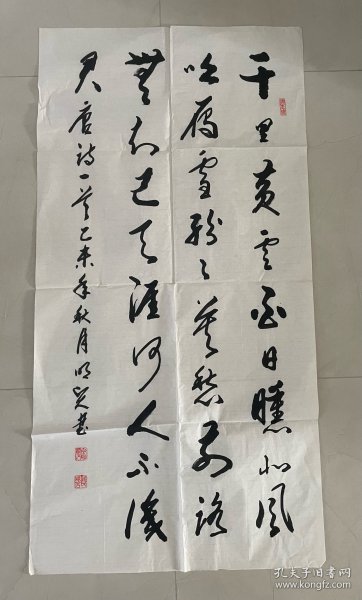 千里黄云白日曛北风
吹雁雪纷纷莫愁前路
無知己天涯何人不識
君 唐诗一首乙未年秋月明贤书
孔夫子旧书网
www.kongfz.com